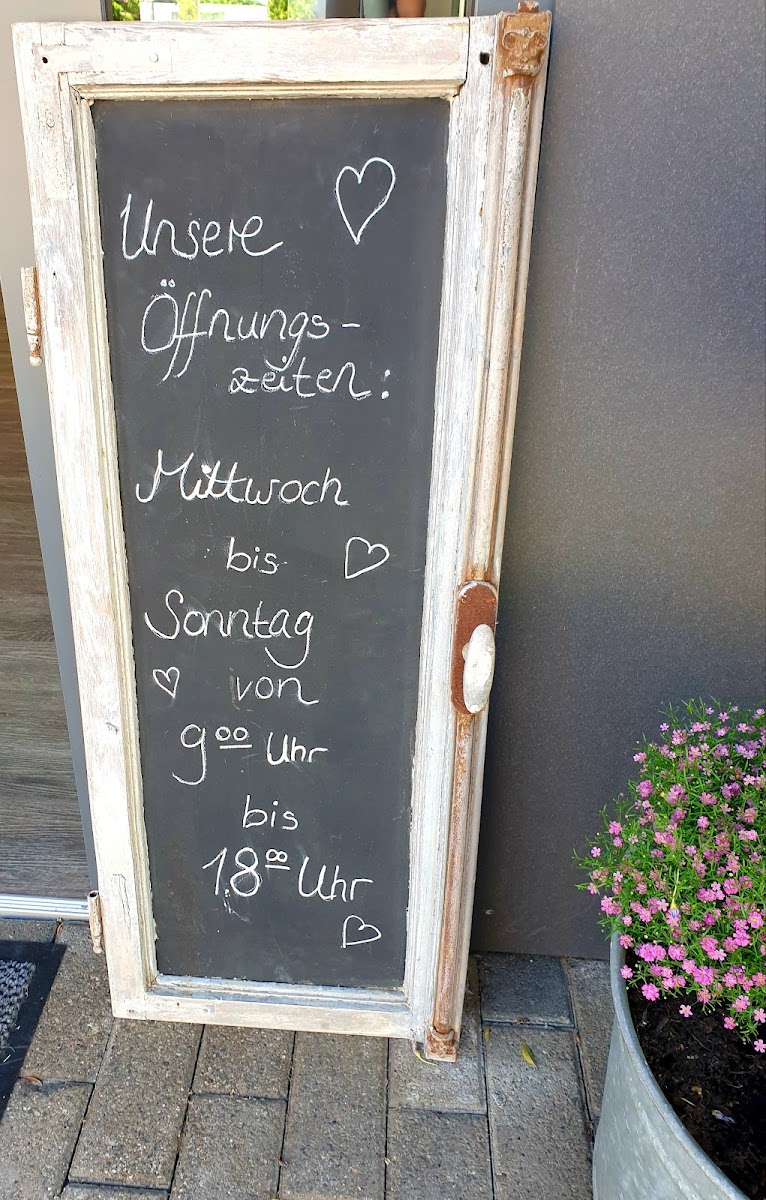 Unsere
Öffnungs-
zeiten:
Mittwoch
bis
Sonntag
von
9⁰⁰ Uhr
bis
18⁰⁰ Uhr